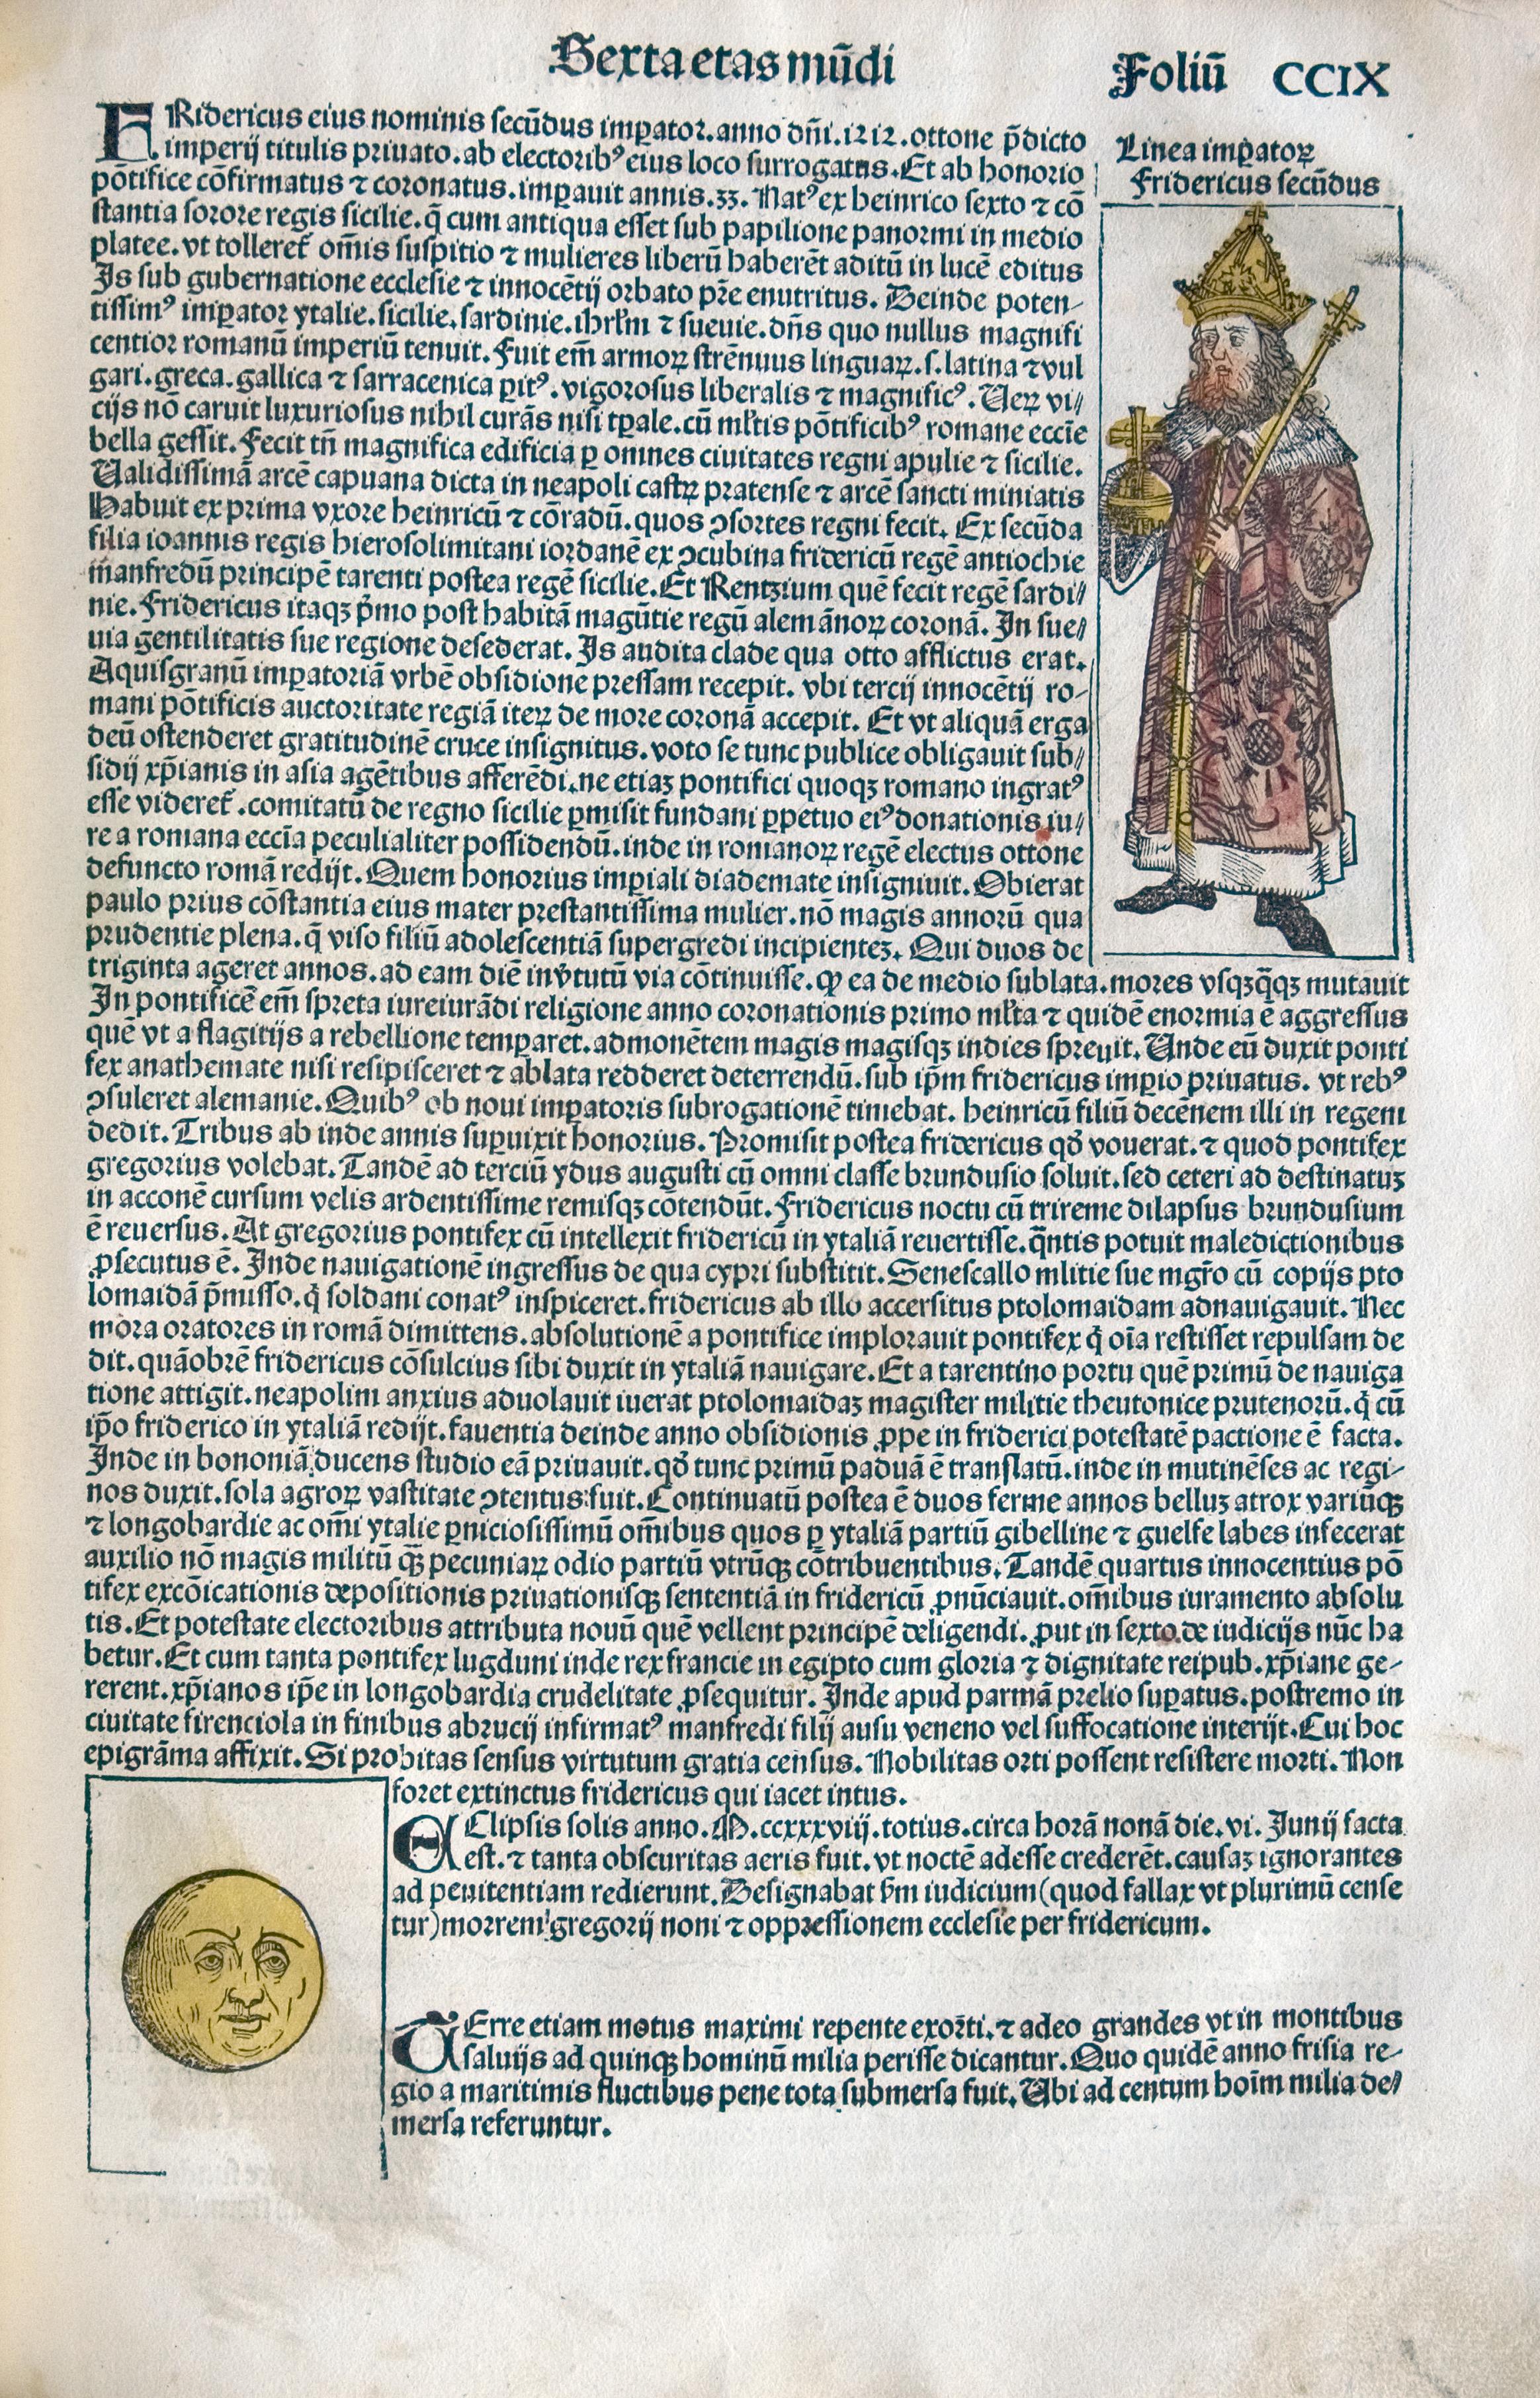 Sexta etas mũdi
Foliũ CCIX
Linea imp̲atoꝝ
Fridericus secũdus
FRidericus eius nominis secũdus imp̲ator.anno dñi.1212.ottone p̃dicto
imperij titulis priuato.ab electoribꝰ eius loco surrogatus.Et ab honorio
põtifice cõfirmatus ⁊ coronatus.imp̲auit annis.33.Natꝰ ex heinrico sexto ⁊ cõ
stantia sorore regis sicilie.q̃ cum antiqua esset sub papilione panormi in medio
platee.vt tolleret᷑ om̃is suspitio ⁊ mulieres liberũ haberẽt aditũ in lucẽ editus
Is sub gubernatione ecclesie ⁊ innocẽtij orbato pr̃e enutritus. Deinde poten-
tissimꝰ imp̲ator ytalie.sicilie.sardinie.ihrl̃m ⁊ sueuie.dñs quo nullus magnifi
centior romanũ imperiũ tenuit.Fuit em̃ armoꝝ strẽnuus linguaꝝ.s.latina ⁊ vul
gari.greca.gallica ⁊ sarracenica p̲itꝰ.vigorosus liberalis ⁊ magnificꝰ.Ueꝝ vi//
cijs nõ caruit luxuriosus nihil curãs nisi tp̲ale.cũ ml̃tis põtificibꝰ romane eccl̃e
bella gessit.Fecit tñ magnifica edificia p̲ omnes ciuitates regni apulie ⁊ sicilie.
Ualidissimã arcẽ capuana dicta in neapoli castꝝ pratense ⁊ arcẽ sancti miniatis
Habuit ex prima vxore heinricũ ⁊ cõradũ.quos ꝯsortes regni fecit. Ex secũda
filia ioannis regis hierosolimitani iordanẽ ex ꝯcubina fridericũ regẽ antiochie
manfredũ principẽ tarenti postea regẽ sicilie.Et Rentzium quẽ fecit regẽ sardi//
nie.Fridericus itaqꝫ p̃mo post habitã magũtie regũ alemãnoꝝ coronã. In sue//
uia gentilitatis sue regione desederat. Is audita clade qua otto afflictus erat.
Aquisgranũ imp̲atoriã vrbẽ obsidione pressam recepit. vbi tercij innocẽtij ro-
mani põtificis auctoritate regiã iteꝝ de more coronã accepit. Et vt aliquã erga
deũ ostenderet gratitudinẽ cruce insignitus.voto se tunc publice obligauit sub//
sidij xp̃ianis in asia agẽtibus afferẽdi.ne etiaꝫ pontifici quoqꝫ romano ingratꝰ
esse videret᷑.comitatũ de regno sicilie p̲misit fundani p̲petuo eiꝰ donationis iu//
re a romana eccl̃ia peculialiter possidendũ.inde in romanoꝝ regẽ electus ottone
defuncto romã redijt.Quem honorius imp̲iali diademate insigniuit.Obierat
paulo prius cõstantia eius mater prestantissima mulier.nõ magis annorũ qua
prudentie plena.q̃ viso filiũ adolescentiã supergredi incipienteꝫ. Qui duos de
triginta ageret annos.ad eam diẽ in vtutũ via cõtinuisse.ꝙ ea de medio sublata.mores vsqꝫq̃qꝫ mutauit
In pontificẽ em̃ spreta iureiurãdi religione anno coronationis primo ml̃ta ⁊ quidẽ enormia ẽ aggressus
quẽ vt a flagitijs a rebellione temp̲aret.admonẽtem magis magisqꝫ indies spreuit.Unde eũ duxit ponti
fex anathemate nisi resipisceret ⁊ ablata redderet deterrendũ.sub ip̃m fridericus imp̲io priuatus. vt rebꝰ
ꝯsuleret alemanie.Quibꝰ ob noui imp̲atoris subrogationẽ timebat. heinricũ filiũ decẽnem illi in regem
dedit.Tribus ab inde annis sup̲uixit honorius.Promisit postea fridericus qd̃ vouerat.⁊ quod pontifex
gregorius volebat.Tandẽ ad terciũ ydus augusti cũ omni classe brundusio soluit.sed ceteri ad destinatuꝫ
in acconẽ cursum velis ardentissime remisqꝫ cõtendũt.Fridericus noctu cũ trireme dilapsus brundusium
ẽ reuersus.At gregorius pontifex cũ intellexit fridericũ in ytaliã reuertisse.q̃ntis potuit maledictionibus
ꝓsecutus ẽ. Inde nauigationẽ ingressus de qua cypri substitit.Senescallo militie sue mgr̃o cũ copijs pto
lomaidã p̃misso.q̃ soldani conatꝰ inspiceret.fridericus ab illo accersitus ptolomaidam adnauigauit. Nec
mora oratores in romã dimittens.absolutionẽ a pontifice implorauit pontifex q̃ oĩa restisset repulsam de
dit.quãobrẽ fridericus cõsulcius sibi duxit in ytaliã nauigare.Et a tarentino portu quẽ primũ de nauiga
tione attigit.neapolim anxius aduolauit iuerat ptolomaidaꝫ magister militie theutonice prutenorũ.q̃ cũ
ip̃o friderico in ytaliã redijt.fauentia deinde anno obsidionis ꝓpe in friderici potestatẽ pactione ẽ facta.
Inde in bononiã ducens studio eã priuauit.qd̃ tunc primũ paduã ẽ translatũ.inde in mutinẽses ac regi-
nos duxit.sola agroꝝ vastitate ꝯtentus fuit.Continuatũ postea ẽ duos ferme annos belluꝫ atrox variũqꝫ
⁊ longobardie ac om̃i ytalie p̲niciosissimũ om̃ibus quos p̲ ytaliã partiũ gibelline ⁊ guelfe labes infecerat
auxilio nõ magis militũ qꝫ̃ pecuniaꝝ odio partiũ vtrũqꝫ cõtribuentibus.Tandẽ quartus innocentius põ
tifex excõicationis depositionis priuationisqꝫ sententiã in fridericũ ꝓnũciauit.om̃ibus iuramento absolu
tis.Et potestate electoribus attributa nouũ quẽ vellent principẽ deligendi.ꝓut in sexto.de iudicijs nũc ha
betur.Et cum tanta pontifex lugduni inde rex francie in egipto cum gloria ⁊ dignitate reipub.xp̃iane ge-
rerent.xp̃ianos ip̃e in longobardia crudelitate ꝓsequitur. Inde apud parmã prelio sup̲atus.postremo in
ciuitate firenciola in finibus abrucij infirmatꝰ manfredi filij ausu veneno vel suffocatione interijt.Cui hoc
epigrãma affixit.Si probitas sensus virtutum gratia census. Nobilitas orti possent resistere morti. Non
foret extinctus fridericus qui iacet intus.
EClipsis solis anno.M.ccxxxviij.totius.circa horã nonã die.vi. Junij facta
est.⁊ tanta obscuritas aeris fuit.vt noctẽ adesse crederẽt.causaꝫ ignorantes
ad penitentiam redierunt.Designabat sm̃ iudicium(quod fallax vt plurimũ cense
tur)mortem gregorij noni ⁊ oppressionem ecclesie per fridericum.
TErre etiam motus maximi repente exorti.⁊ adeo grandes vt in montibus
saluijs ad quinqꝫ hominũ milia perisse dicantur.Quo quidẽ anno frisia re-
gio a maritimis fluctibus pene tota submersa fuit.Ubi ad centum hoĩm milia de//
mersa referuntur.